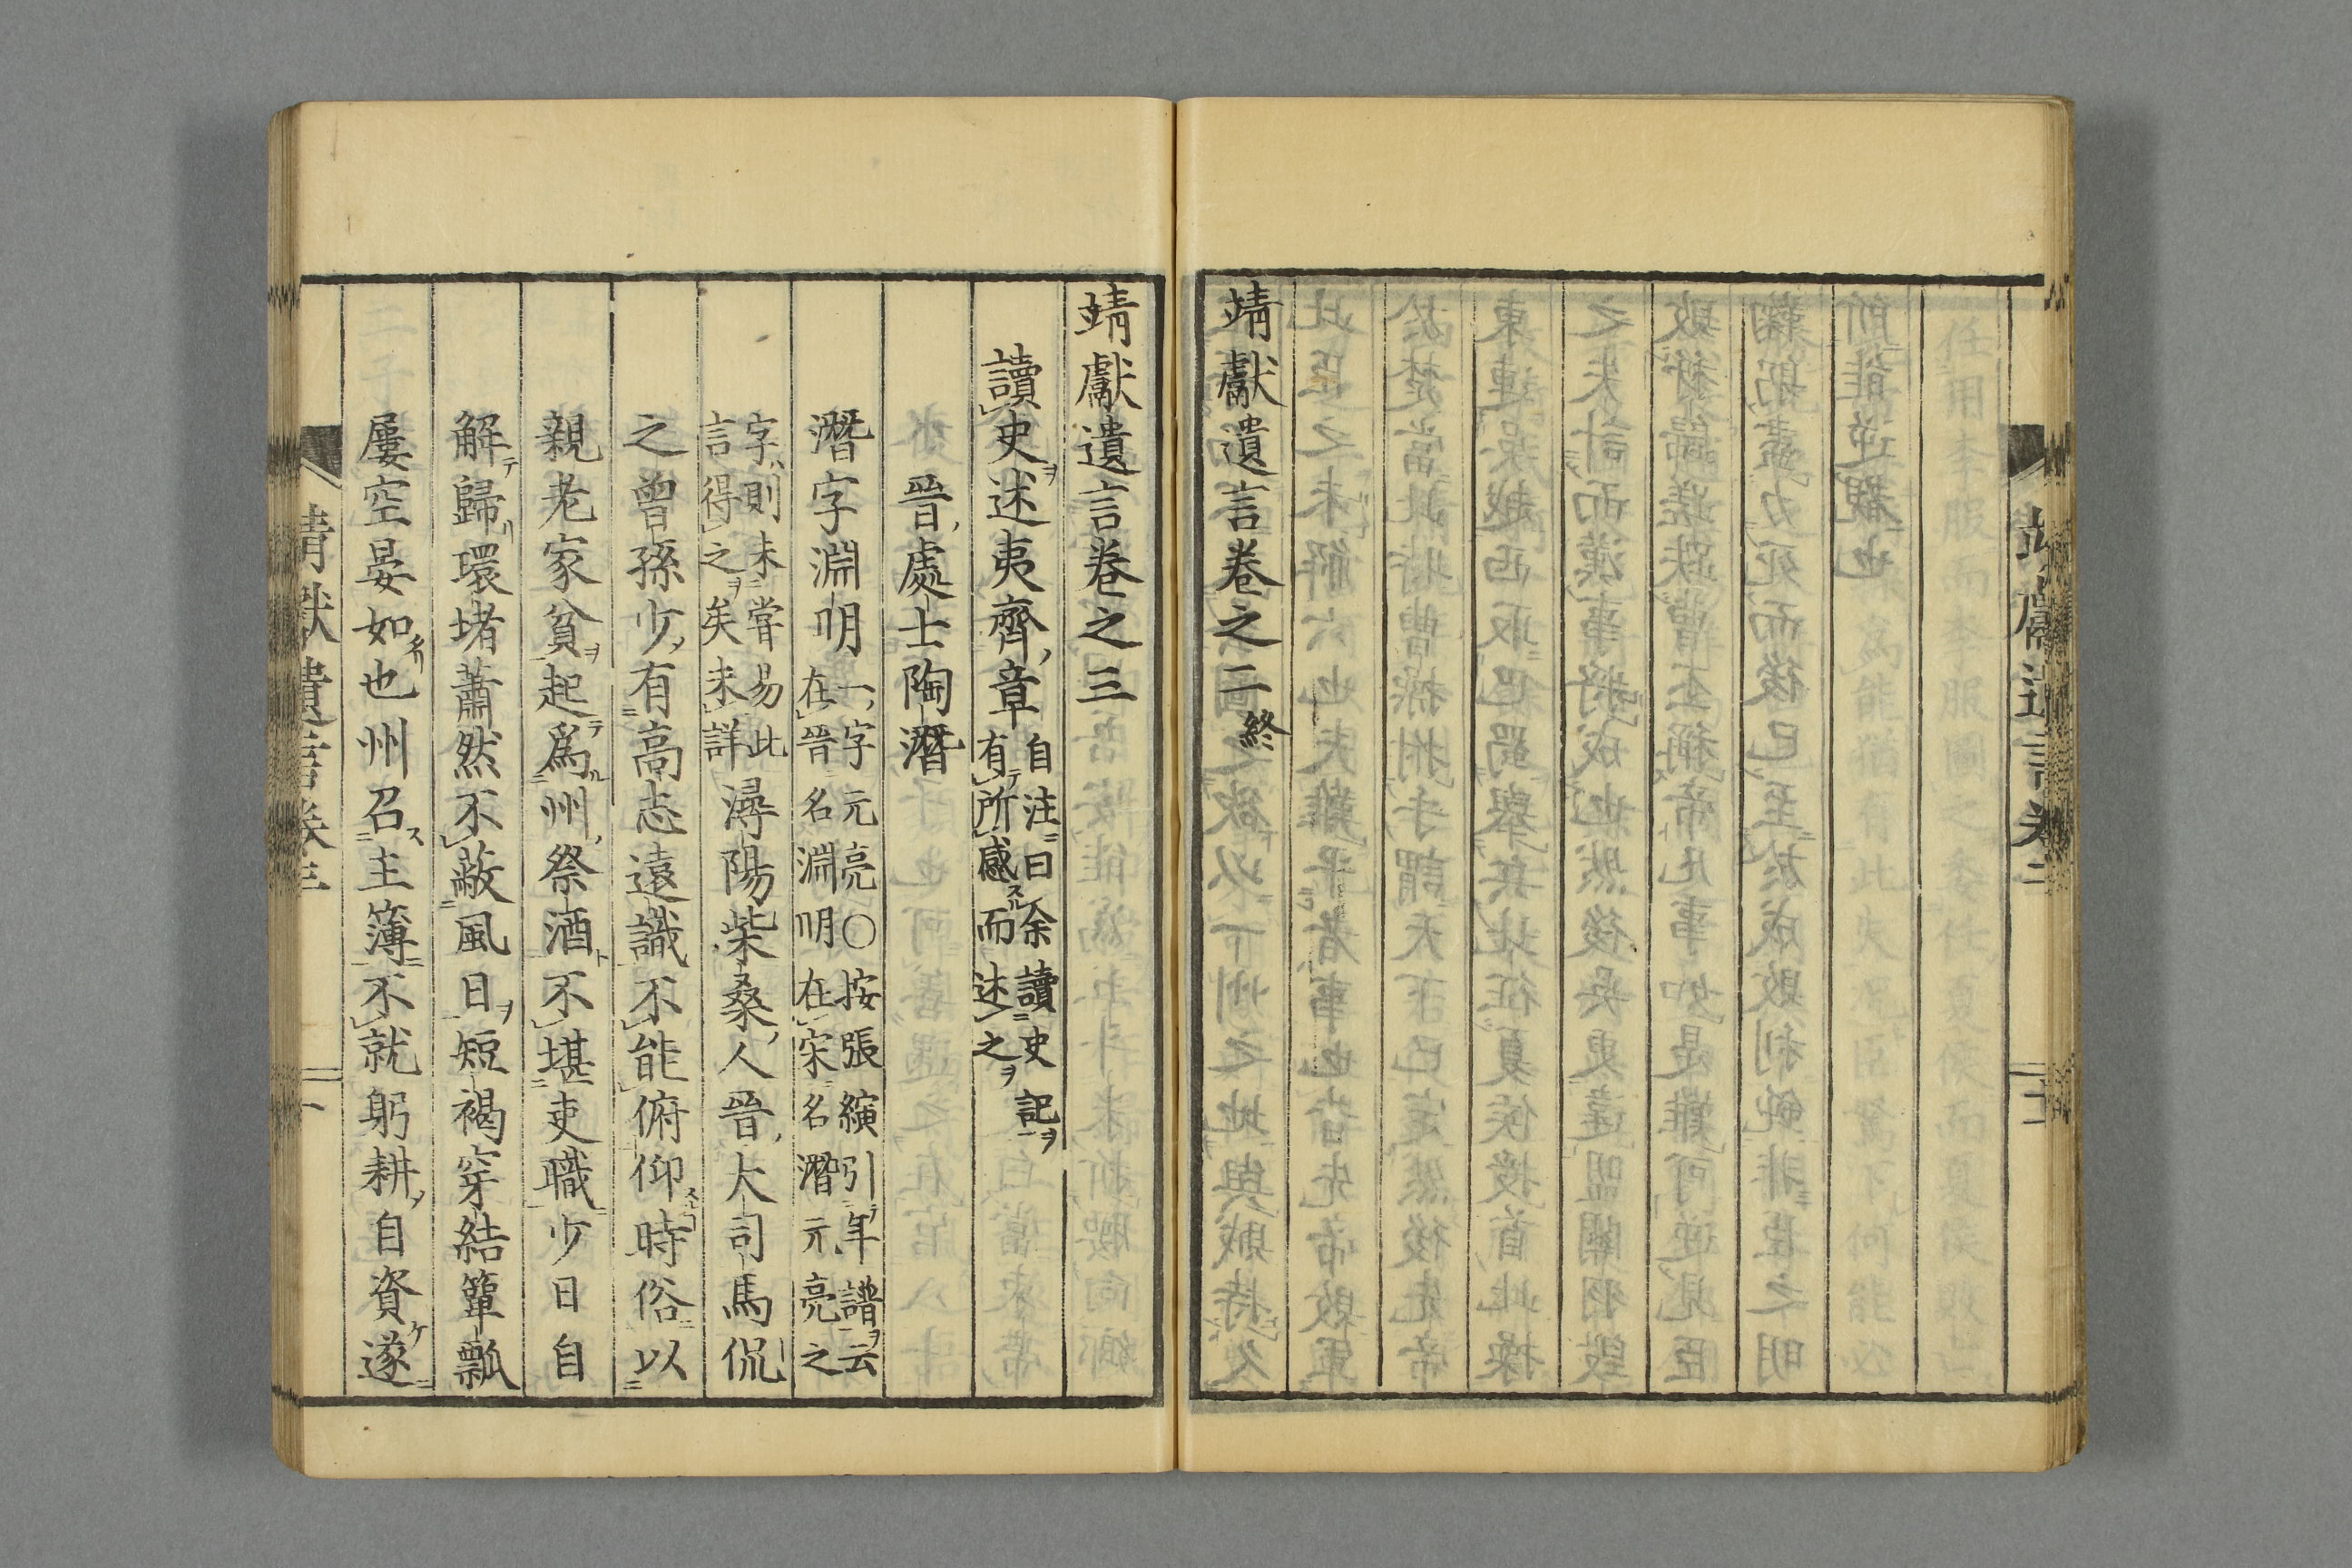 靖獻遺言卷之二終
靖獻遺言卷之三
讀史述夷齊章 自注曰余讀史記
有所感而述之
晉處士陶潛
潛字淵明 一字元亮○按張縯引年譜云
在晉名淵明在宋名潛元亮之
字則未嘗易此
言得之矣未詳 潯陽柴桑人晉大司馬侃
之曾孫少有高志遠識不能俯仰時俗以
親老家貧起爲州祭酒不堪吏職少日自
解歸環堵蕭然不蔽風日短褐穿結簞瓢
屢空晏如也州召主簿不就躬耕自資遂
靖獻遺言卷三